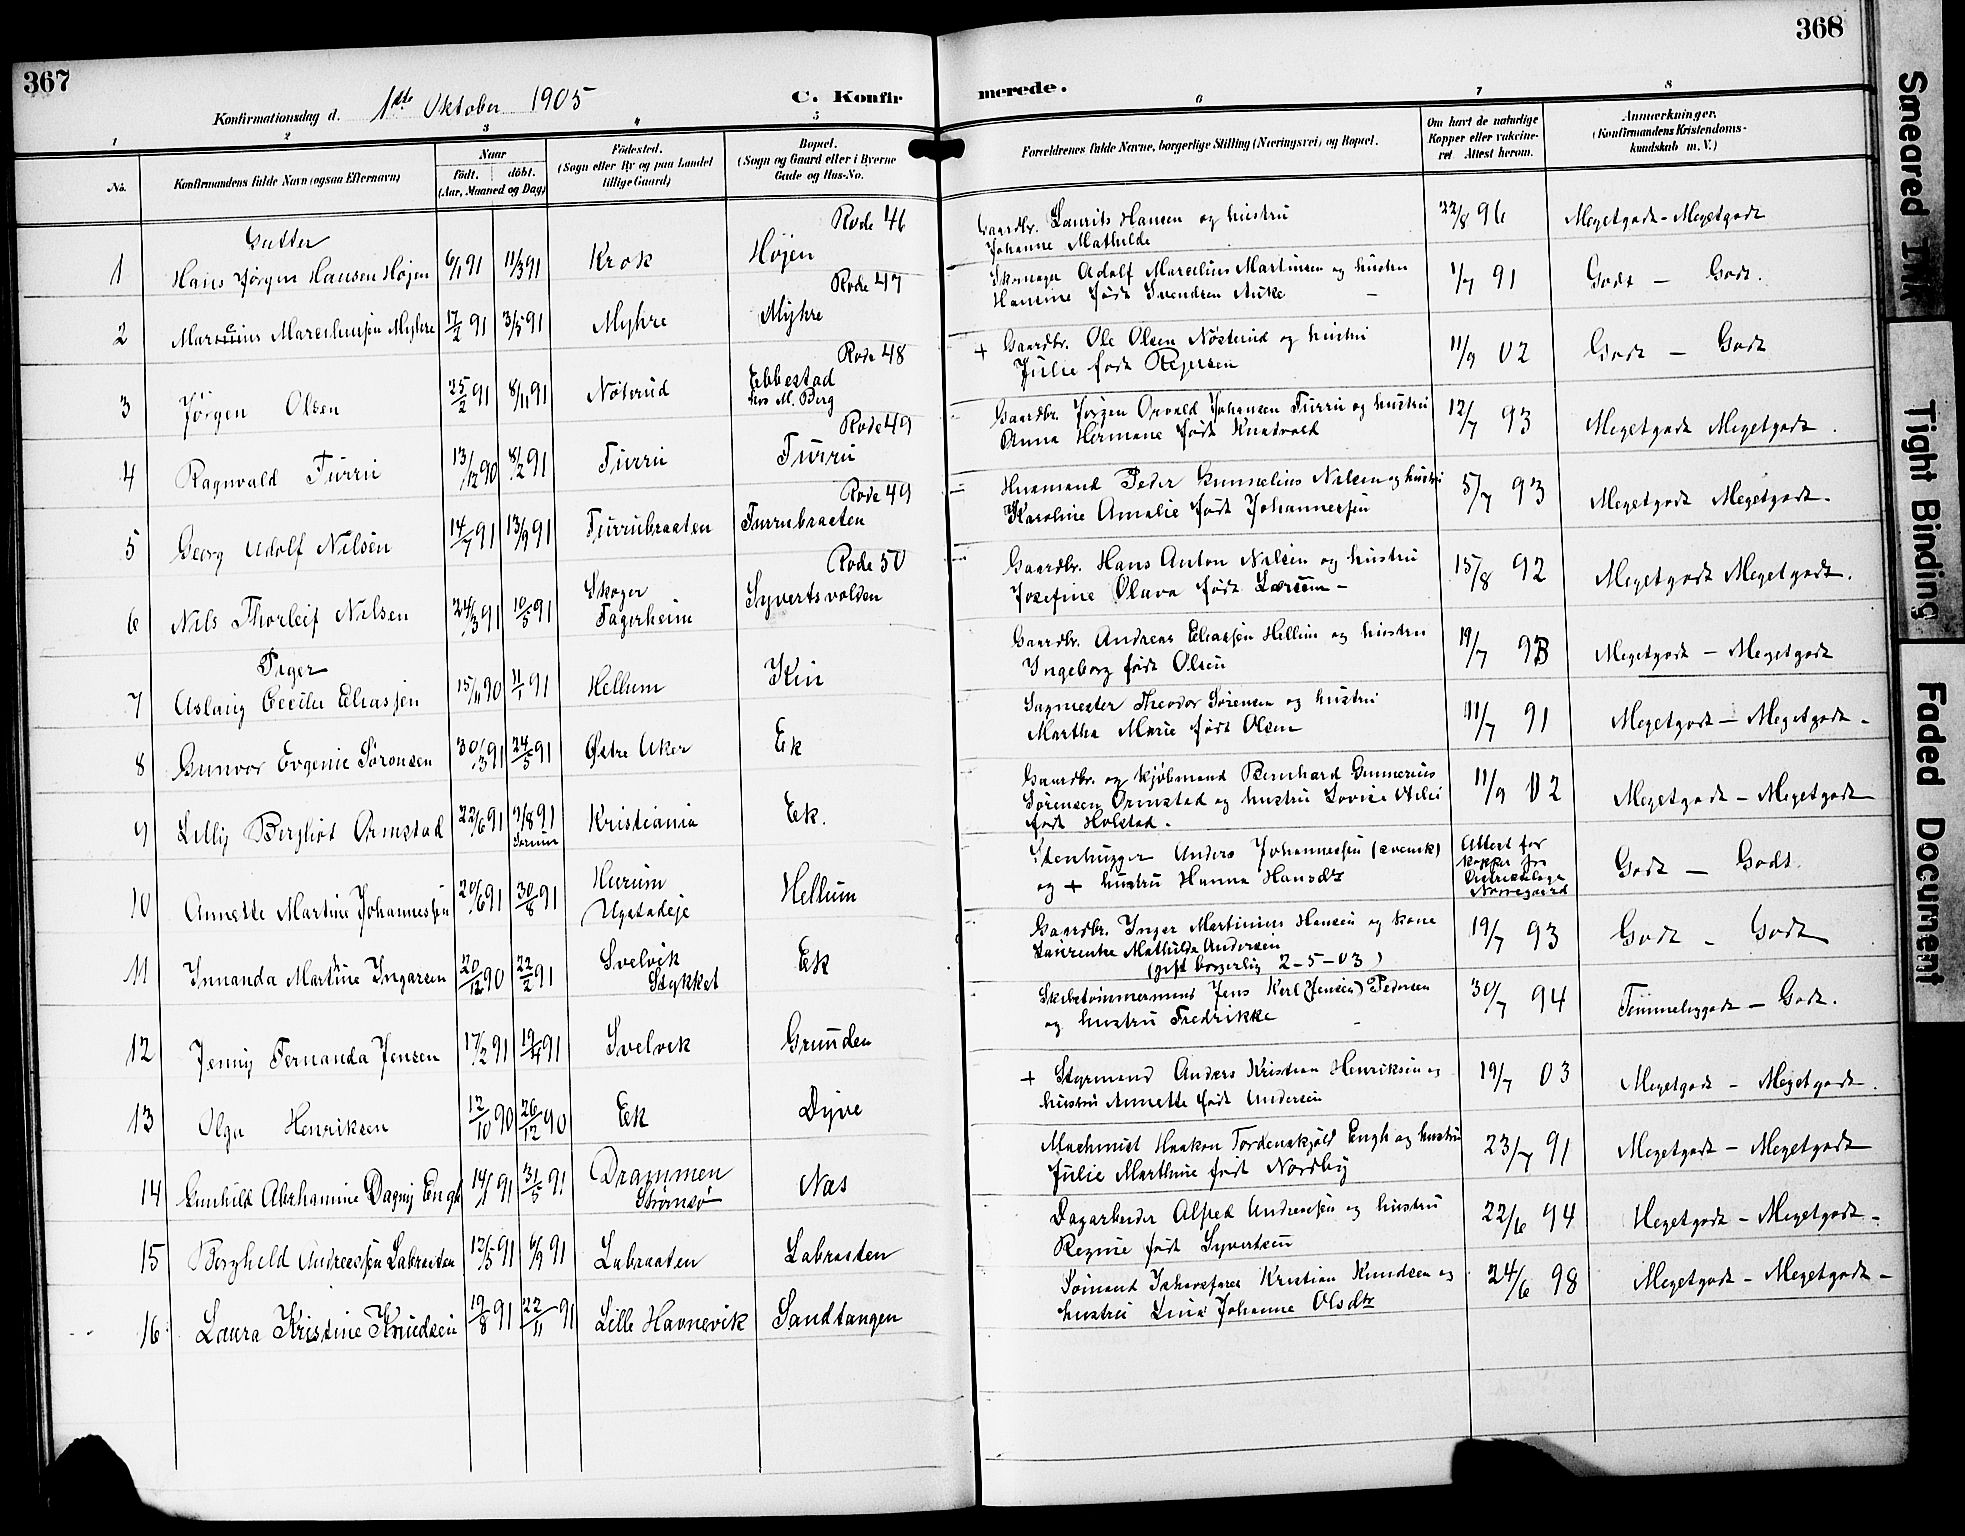 367
Konfirmationsdag d. 1ste Oktober 1905
C. Konfir
1 2 3 4 5
No.
Konfirmandens fulde Navn (ogsaa Efternavn)
Naar
født. døbt.
(Aar, Maaned og Dag)
Fødested.
(Sogn eller By og paa Landet
tillige Gaard)
Bopæl.
(Sogn og Gaard eller i Byerne
Gade og Hus-No.
Gutter
Rode 46
1 Hans Jørgen Hansen Højen 6/1 91 11/3 91 Krok Højen
Rode 47
2 Marcelius Marceliussen Myhre 17/2 91 3/5 91 Myhre Myhre
Rode 48
3 Jørgen Olsen 25/2 91 8/11 91 Nøterud Ebbestad
hos M. Berg
Rode 49
4 Ragnvald Turru 13/12 90 8/2 91 Turru Turru
Rode 49
5 Georg Adolf Nilsen 14/7 91 13/9 91 Turrubraaten Turrubraaten
Rode 50
6 Nils Thorleif Nilsen 24/3 91 10/5 91 Skoger
Fagerheim Syvertsvolden
Piger
7 Aslaug Cecilie Eliassen 15/11 90 11/1 91 Hellum Kin
8 Gunvor Evgenie Sørensen 30/3 91 24/5 91 Østre Aker Ek
9 Lilly Bergliot Ormstad 22/6 91 9/8 91 Kristiania Ek.
10 Annette Martine Johannessen 20/6 91 30/8 91 Hurum
Ugstadeje Hellum
11 Innanda Martine Ingarsen 20/12 90 22/2 91 Svelvik
Stykket Ek
12 Jenny Fernanda Jensen 17/2 91 19/4 91 Svelvik Grunden
13 Olga Henriksen 12/10 90 26/12 90 Ek Dyve
14 Gunhild Abrhamine Dagny Engh 14/1 91 31/5 91 Drammen
Strømsø Næs
15 Borghild Andreassen Labraaten 13/5 91 6/9 91 Labraaten Labraaten
16 Laura Kristine Knudsen 19/8 91 22/11 91 Lille Havnevik Sandtangen
368
merede.
6 7 8
Forældrenes fulde Navne, borgerlige Stilling (Næringsvei) og Bopæl.
Om havt de naturlige
Kopper eller vakcine-
ret Attest herom.
Anmærkninger.
(Konfirmandens Kristendoms-
kundskab m. V.)
Gaardbr. Laurits Hansen og hustru
Johanne Mathilde 22/8 96 Megetgodt - Megetgodt
Skomager Adolf Marcelius Martinsen og hustru
Hanine født Svendsen Auke 1/7 91 Godt - Godt.
+ Gaardbr. Ole Olsen Nøsterud og hustru
Julie født Rejersen 11/9 02 Godt - Godt
Gaardbr. Jørgen Osvald Johansen Turru og hustru
Anna Hermane født Knatvold 12/7 93 Megetgodt Megetgodt.
Husmand Peder Gunnelius Nilsen og hustru
Karoline Amalie født Johannessen 5/7 93 Megetgodt Megetgodt.
Gaardbr. Hans Anton Nilsen og hustru
Josefine Olava født Larsen - 15/8 92 Megetgodt Megetgodt.
Gaardbr. Andreas Eliassen Hellum og hustru
Ingeborg født Olsen 19/7 93 Megetgodt - Megetgodt
Sagmester Theodor Sørensen og hustru
Martha Marie født Olsen 11/7 91 Megetgodt - Megetgodt -
Gaardbr. og kjøbmand Bernhard Gunnerius
Sørensen Ormstad og hustru Lovise
født Holstad. 11/9 02 Megetgodt - Megetgodt
Stenhugger Anders Johannessen (svensk)
og + hustru Hanna Hansdtr
Attest for
kopper fra
Distriktslæge
Nørregaard
Godt - Godt.
Gaardbr. Inger Martinius Hansen og kone
Laurentse Mathilde Andersen
(gift borgerlig 2-5-03) 19/7 93 Godt - Godt
Skibstømmermand Jens Karl (Jensen) Pedersen
og hustru Fredrikke 30/7 94 Temmeliggodt - Godt.
+ Styrmand Anders Kristian Henriksen og
hustru Annette født Andersen 19/7 03 Megetgodt - Megetgodt.
Maskinist Haakon Tordenskjold Engh og hustru
Julie Marthine født Nordby 23/7 91 Megetgodt - Megetgodt
Dagarbeider Alfred Andreassen og hustru
Regine født Syvertsen 22/6 94 Megetgodt - Megetgodt -
Sømand Ishavsfarer Kristian Knudsen og
hustru Lina Johanne Olsdtr 24/6 98 Megetgodt - Megetgodt -
Smeared Ink
Tight Binding
Faded Document